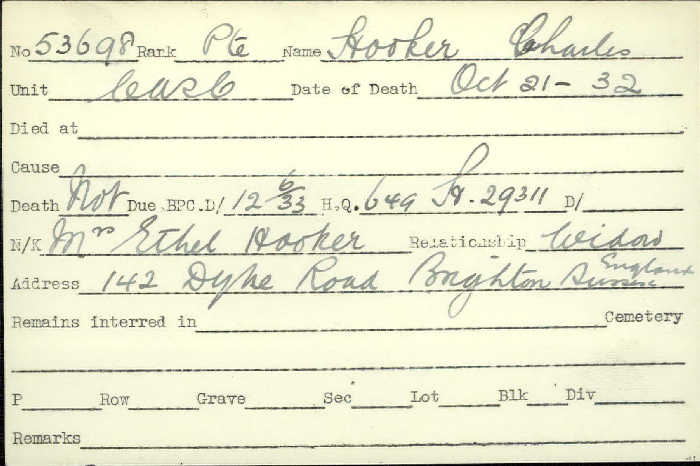 No 53698 Rank Pte Name Hooker Charles
Unit CASC Date of Death Oct 21 - 32
Died at
Cause
Death Not Due BPC.D/ 12 6/33 H.Q. 649 H. 29311 D/
N/K Mrs Ethel Hooker Relationship Widow
Address 142 Dyke Road Brighton Sussex England
Remains interred in Cemetery
P Row Grave Sec Lot Blk Div
Remarks